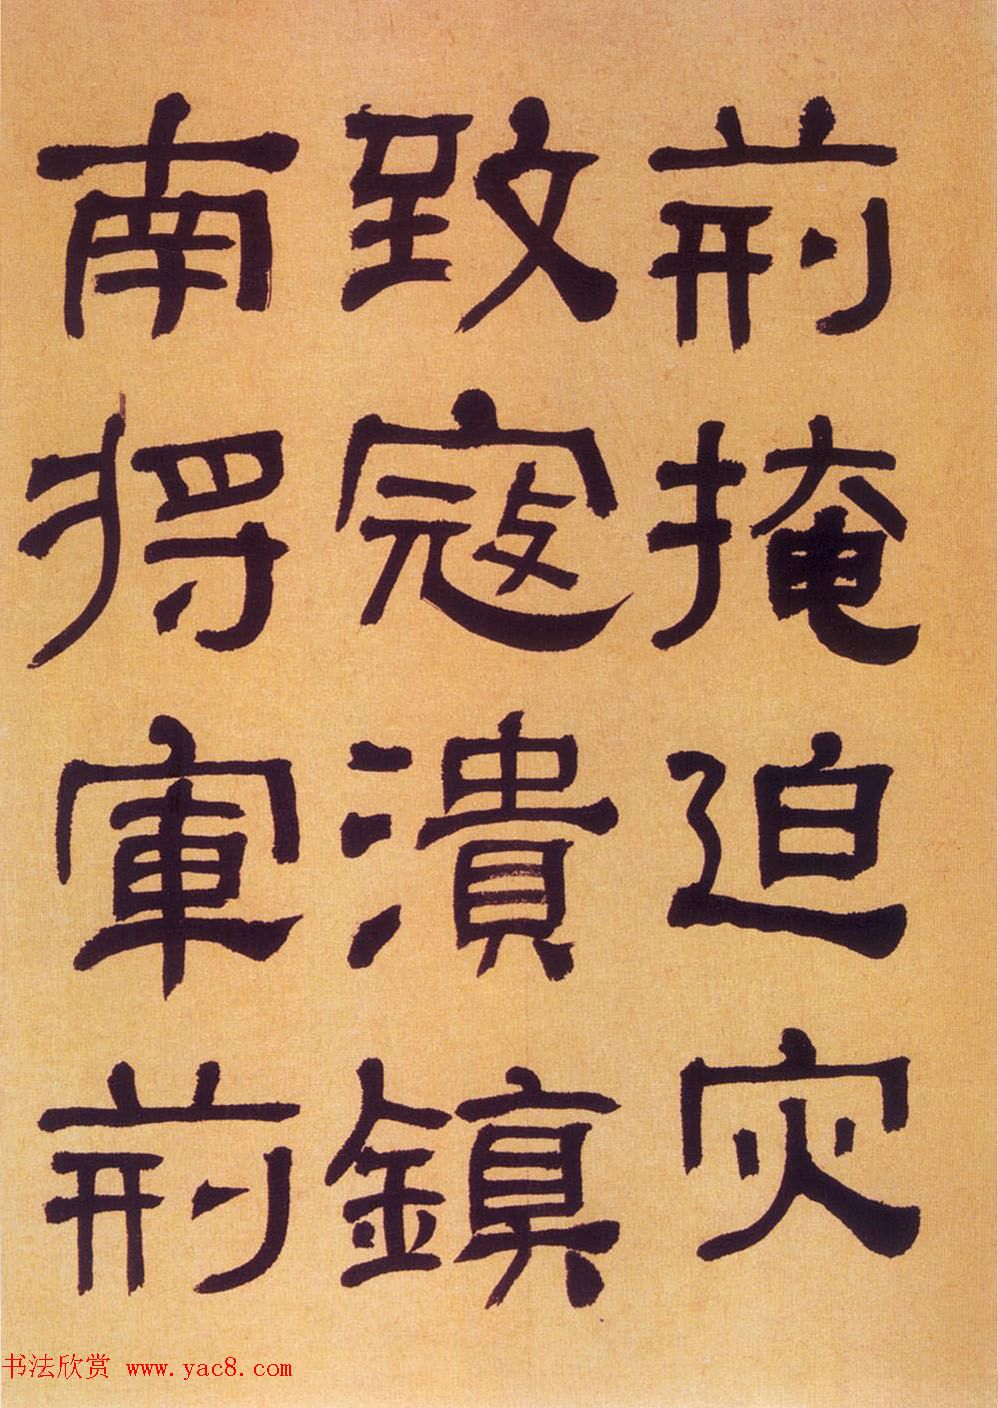 荊掩迫灾
致寇潰鎮
南將軍荊
书法欣赏 www.yac8.com